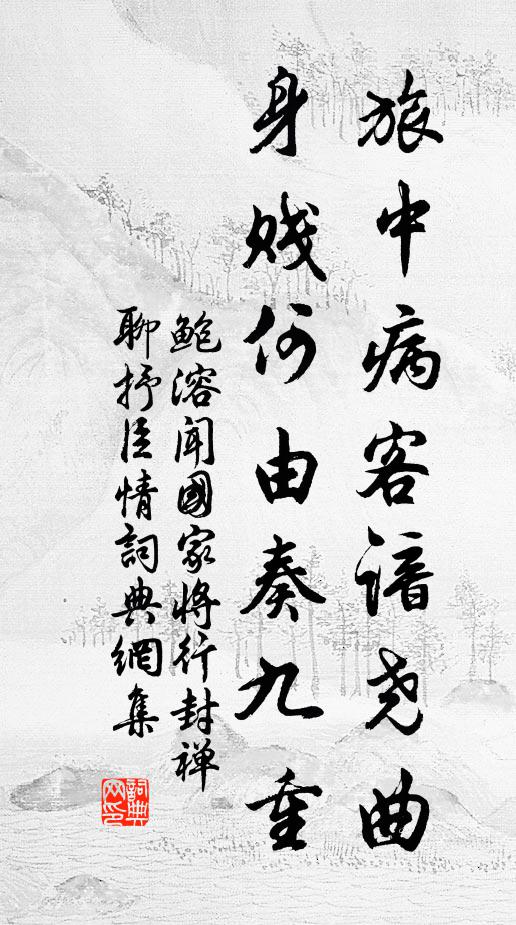 旅中病客諳尧曲
身贱何由奏九重
鲍溶闻國家将行封禅
聊抒臣情詞典網集
詞典网印